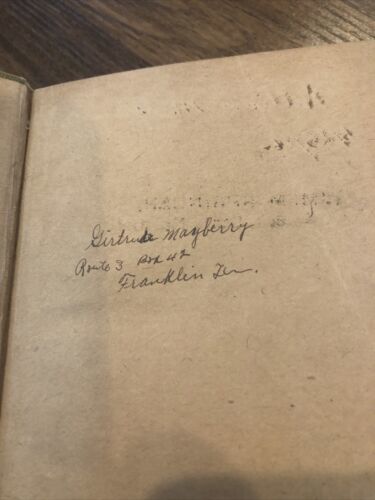 Girtrude Mayberry
Route 3 Box 42
Franklin Ten.